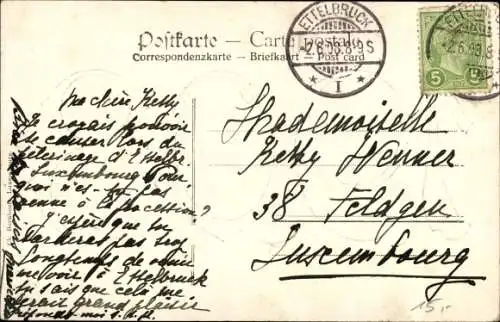 Postkarte – Carte postale
Correspondenzkarte – Briefkaart – Post card
ETTELBRUCK
2.6. 8-9S
* I *
5
5
Ma chère Ketty
Je croyais pouvoir
te causer lors du
pèlerinage d'Ettelbr.
Luxembourg Pour
quoi n'es-tu pas
venue à la procession?
J'espère que tu
tarderas pas trop
longtemps de venir
me voir à Ettelbruck
tu sais que cela me
ferait grand plaisir
Réponds-moi s.t.p.
Mademoiselle
Ketty Wenner
38 Feldgen
Luxembourg
15,-